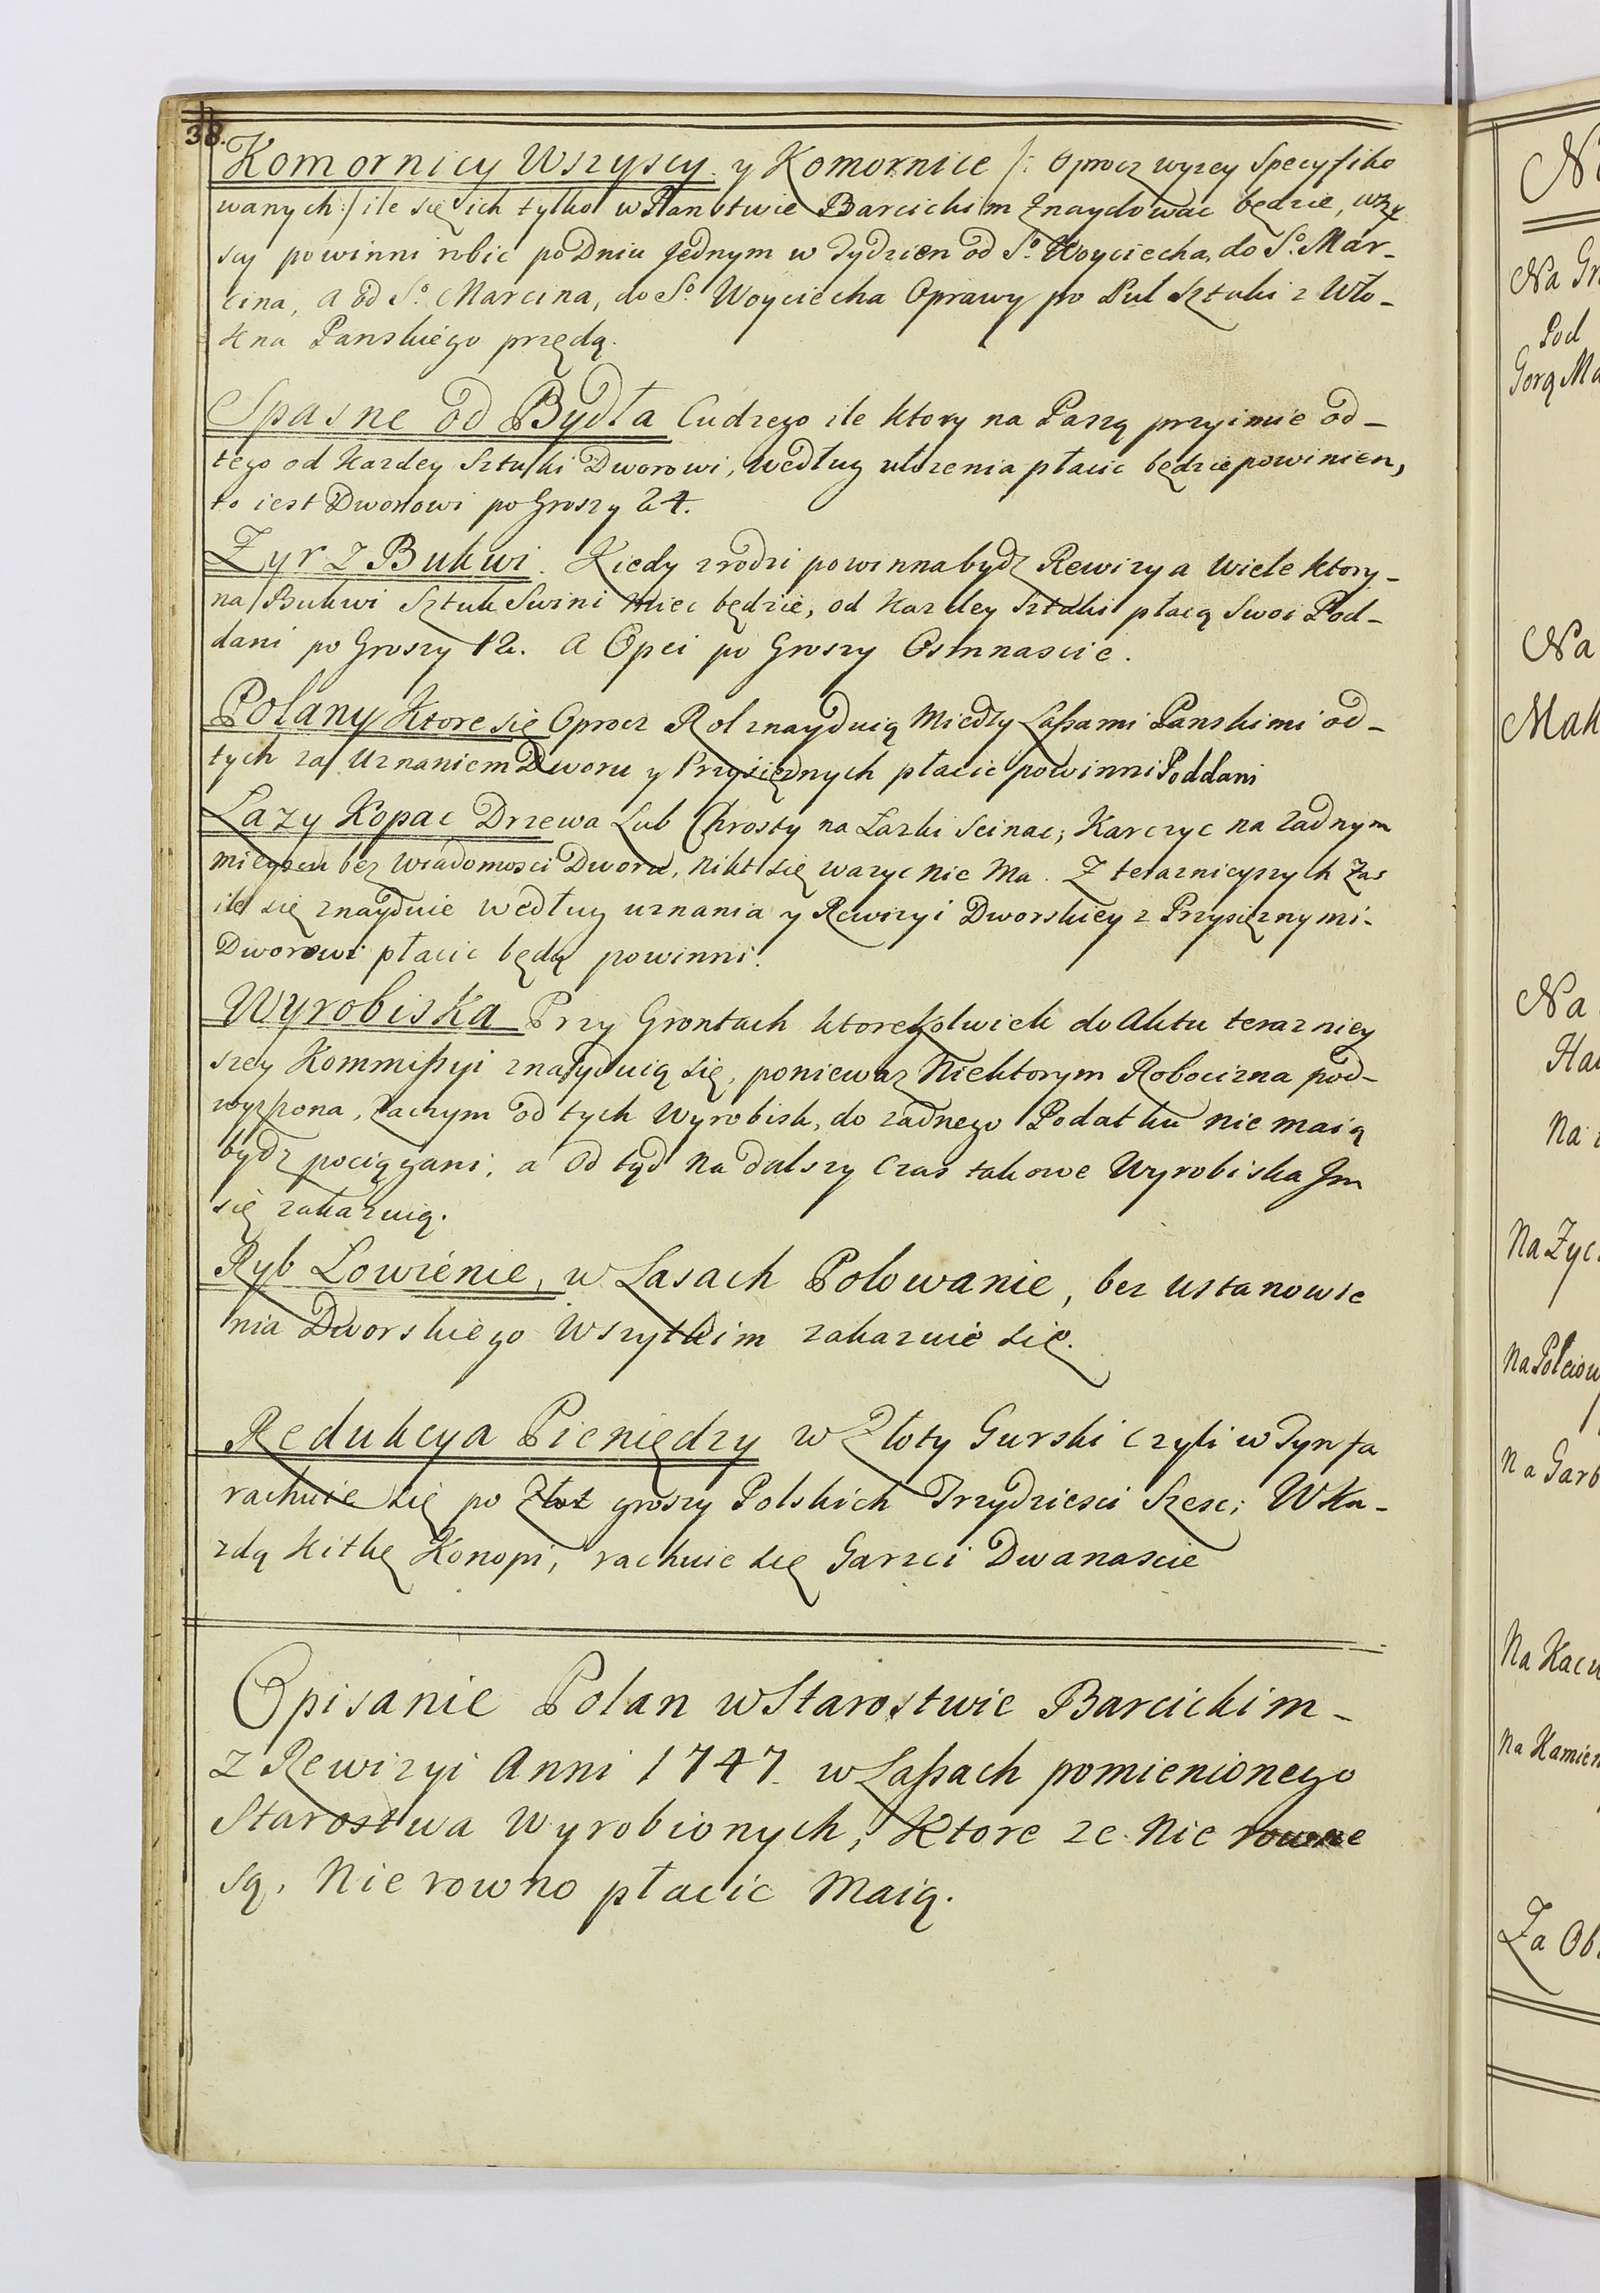 38.
Komornicy Wszyscy y Komornice /: Oprocz wyzey Specyfiko
wanych :/ ile się ich tylko w Panstwie Barcickim znaydować będzie, wszy
scy powinni robic po Dniu Jednym w Tydzien od So Woyciecha, do So Mar-
cina, a od So Marcina, do So Woyciecha Oprawy po Puł Sztuki z Wło-
kna Panskiego przędą.
Spasne od Bydła Cudzego ile ktory na Paszą przyimie od-
tego od Kazdey Sztuki Dworowi, według ułozenia płacic będzie powinien,
to iest Dworowi po Groszy 24.
Zyr z Bukwi. Kiedy zrodzi powinna bydz Rewizya wiele ktory-
na Bukwi Sztuk Swini miec będzie, od Kazdey Sztuki płacą Swoi Pod-
dani po Groszy 12. a Opci po Groszy Osmnascie.
Polany Ktore się Oprocz Rol znayduią Miedzy Lassami Panskimi od-
tych za Uznaniem Dworu y Przysięznych płacic powinni Poddani
Lazy Kopac Drzewa Lub Chrosty na Lazki Scinac, Karczyc na zadnym
mieyscu bez Wiadomosci Dworu, nikt się wazyc nie Ma. Z teraznieyszych Zas
ile się znayduie według uznania y Rewizyi Dworskiey z Przysięznymi-
Dworowi płacic będą powinni.
Wyrobiska Przy Grontach ktorekolwiek do Aktu teraz niey
szey Kommissyi znayduią się, poniewaz Niektorym Robocizna pod-
wyzszona, zaczym od tych Wyrobisk, do zadnego Podatku nie maią
bydz pociągani, a od tąd na dalszy Czas takowe Wyrobiska Jm
się zakazuią.
Ryb Lowienie, w Lasach Polowanie, bez ustanowie
nia Dworskiego Wszytkim zakazuie się.
Redukcya Pieniędzy w Złoty Gurski Czyli w Tynfa
rachuie się po groszy Polskich Trzydziesci Szesc; W Ka-
zdą Kitkę Konopi, rachuie się Garzci Dwanascie
Opisanie Polan w Starostwie Barcickim-
z Rewizyi Anni 1747 w Lassach pomienionego
Starostwa Wyrobionych, Ktore ze Nie rowne
są, Nie rowno płacic Maią.
Na
Pod
Na
Na
Na
Na
Na Kamien
Za